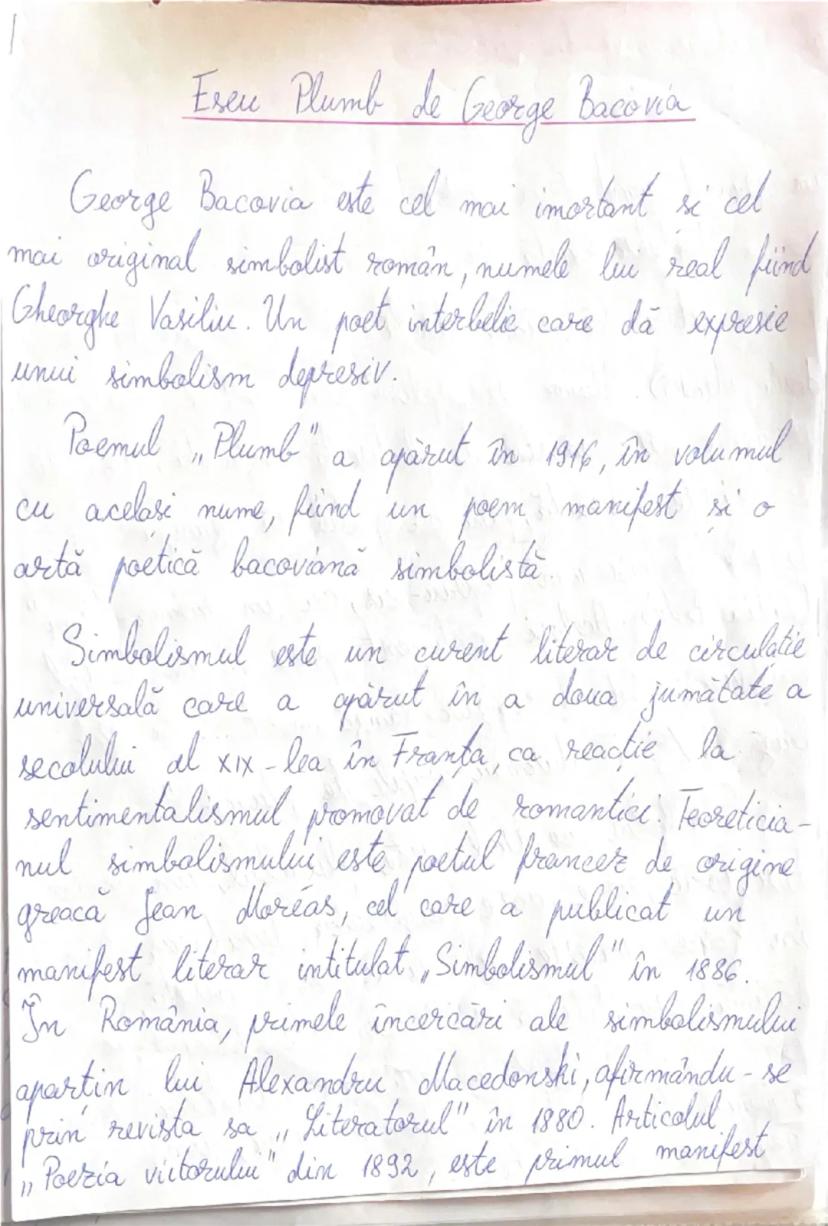 Eseu Plumb de George Bacovia
George Bacovia este cel mai imortant si cel
mai original simbolist român, numele lui real fiind
Gheorghe Vasiliu. Un poet interbelic care dă expresie
unui simbolism depresiv.
Poemul „Plumb" a apărut în 1916, în volumul
cu același nume, fiind un poem manifest și o
artă poetică bacoviană simbolistă.
Simbolismul este un curent literar de circulație
universală care a apărut în a doua jumătate a
secolului al XIX-lea în Franța, ca reacție la
sentimentalismul promovat de romantici. Teoreticia-
nul simbolismului este poetul francez de origine
greacă Jean Moréas, cel care a publicat un
manifest literar intitulat „Simbolismul" în 1886.
În România, primele încercări ale simbolismului
aparțin lui Alexandru Macedonski, afirmându-se
prin revista sa „Literatorul" în 1880. Articolul
„Poezia viitorului" din 1892, este primul manifest